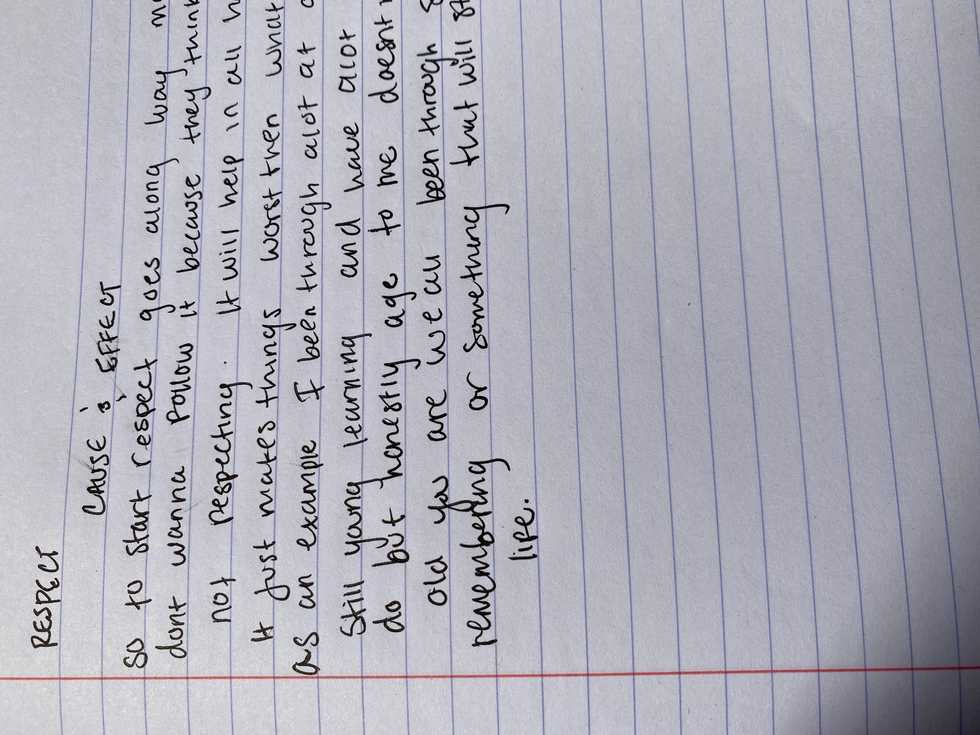 RESPECT
CAUSE & EFFECT
So to start respect goes along way
dont wanna follow it because they think
not respecting. It will help in all
It just makes things worst then what
as an example I been through alot at
Still young learning and have alot
do but honestly age to me doesnt
old you are we all been through
remembering or something that will
life.